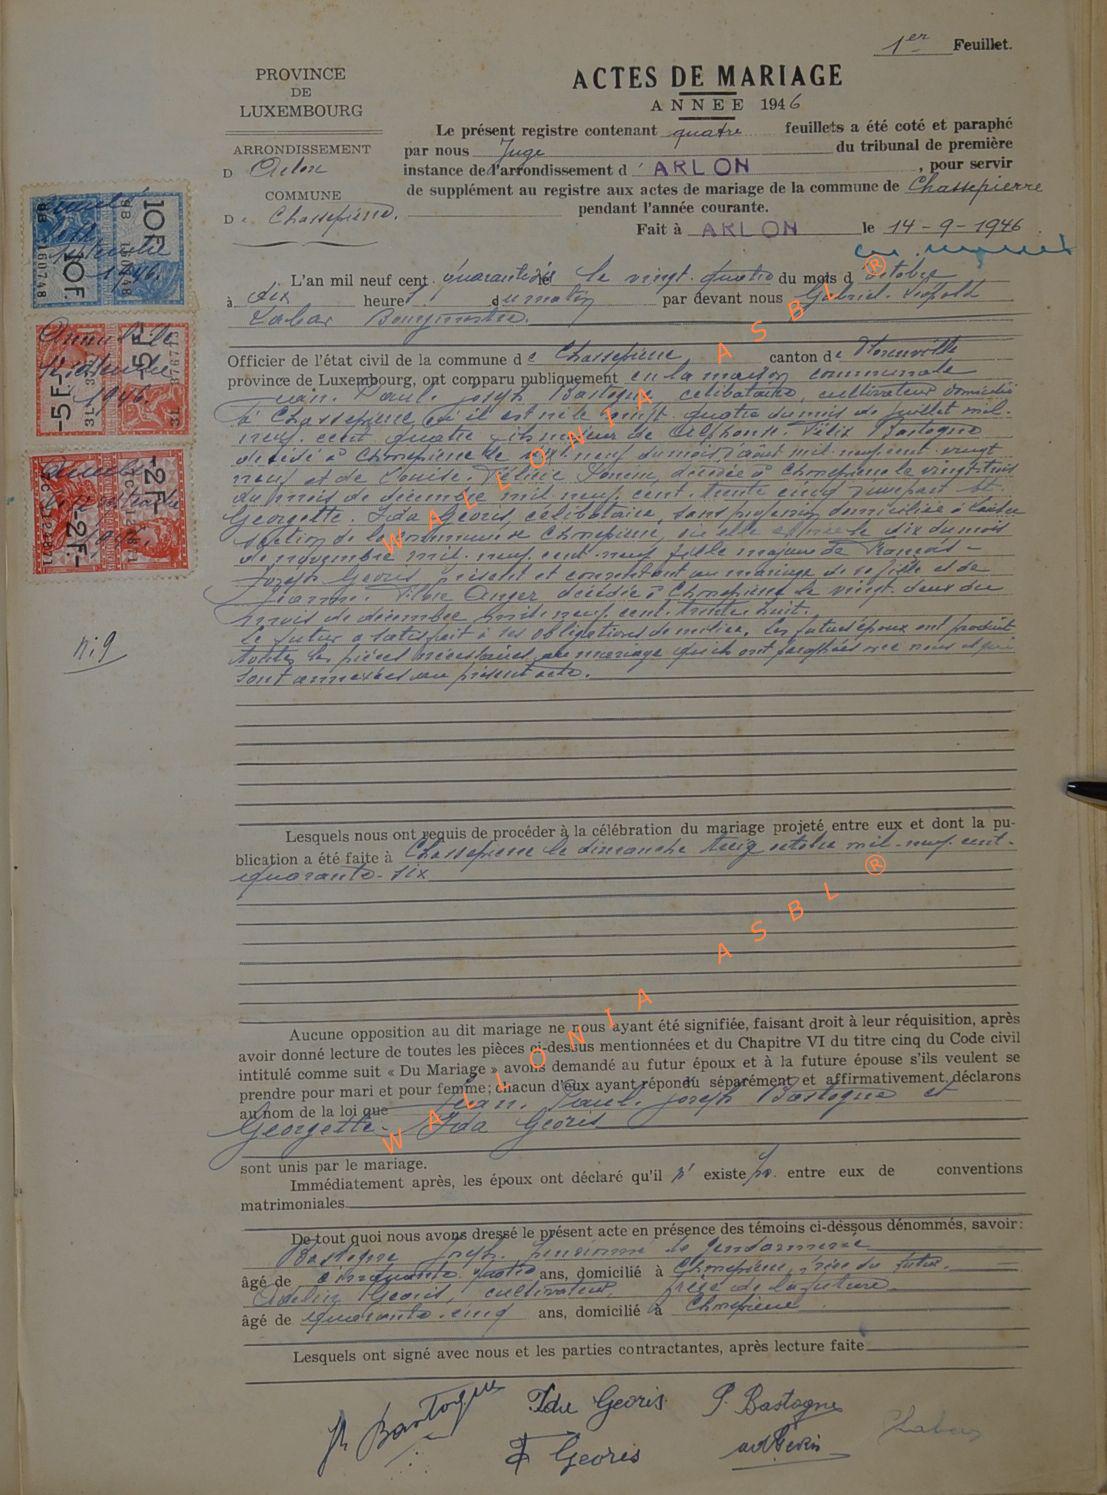 1er Feuillet.
PROVINCE
DE
LUXEMBOURG
ARRONDISSEMENT
D Arlon
COMMUNE
De Chassepierre.
ACTES DE MARIAGE
ANNEE 1946
Le présent registre contenant quatre feuillets a été coté et paraphé
par nous Juge du tribunal de première
instance de l'arrondissement d' ARLON, pour servir
de supplément au registre aux actes de mariage de la commune de Chassepierre
pendant l'année courante.
Fait à ARLON le 14-9-1946
10F.
10F.
1946.
-5F-
-5F-
1946.
-2F-
-2F-
1946.
n: 9
L'an mil neuf cent quarante six le vingt-quatre du mois d'octobre
à dix heure du matin par devant nous Gabriel-Léopold
Bourgmestre.
Officier de l'état civil de la commune de Chassepierre, canton de Florenville
province de Luxembourg, ont comparu publiquement en la maison communale
Jean-Paul-Joseph Bastogne, célibataire, cultivateur domicilié
à Chassepierre où il est né le vingt-quatre du mois de juillet mil-
neuf-cent-quatre, fils majeur de Alphonse-Félix Bastogne
décédé à Chassepierre le neuf du mois d'août mil-neuf-cent-vingt
neuf et de Louise décédée à Chassepierre le vingt-trois
du mois de décembre mil-neuf-cent-trente cinq, d'une part et
Georgette-Ida Georis, célibataire, sans profession domiciliée à
section de la commune de Chassepierre, où elle est née le dix du mois
de novembre mil-neuf-cent-neuf fille majeure de François-
Joseph Georis, présent et consentant au mariage de sa fille et de
Jeanne décédée à Chassepierre le vingt-deux du
mois de décembre mil-neuf-cent-trente huit.
Le futur a satisfait à ses obligations de milice. Les futurs époux ont produit
toutes les pièces nécessaires au mariage qu'ils ont paraphées avec nous et qui
sont annexées au présent acte.
Lesquels nous ont requis de procéder à la célébration du mariage projeté entre eux et dont la pu-
blication a été faite à Chassepierre le dimanche treize octobre mil-neuf-cent-
quarante-six
Aucune opposition au dit mariage ne nous ayant été signifiée, faisant droit à leur réquisition, après
avoir donné lecture de toutes les pièces ci-dessus mentionnées et du Chapitre VI du titre cinq du Code civil
intitulé comme suit « Du Mariage » avons demandé au futur époux et à la future épouse s'ils veulent se
prendre pour mari et pour femme; chacun d'eux ayant répondu séparément et affirmativement, déclarons
au nom de la loi que Jean-Paul-Joseph Bastogne et
Georgette-Ida Georis
sont unis par le mariage.
Immédiatement après, les époux ont déclaré qu'il n'existe pas entre eux de conventions
matrimoniales
De tout quoi nous avons dressé le présent acte en présence des témoins ci-dessous dénommés, savoir:
Bastogne Joseph, pensionné de gendarmerie
âgé de cinquante-quatre ans, domicilié à Chassepierre, frère du futur.
Adelin Georis, cultivateur, frère de la future
âgé de quarante-cinq ans, domicilié à Chassepierre
Lesquels ont signé avec nous et les parties contractantes, après lecture faite
Bastogne Ida Georis P. Bastogne
Georis
WALLONIA ASBL ®
WALLONIA ASBL ®